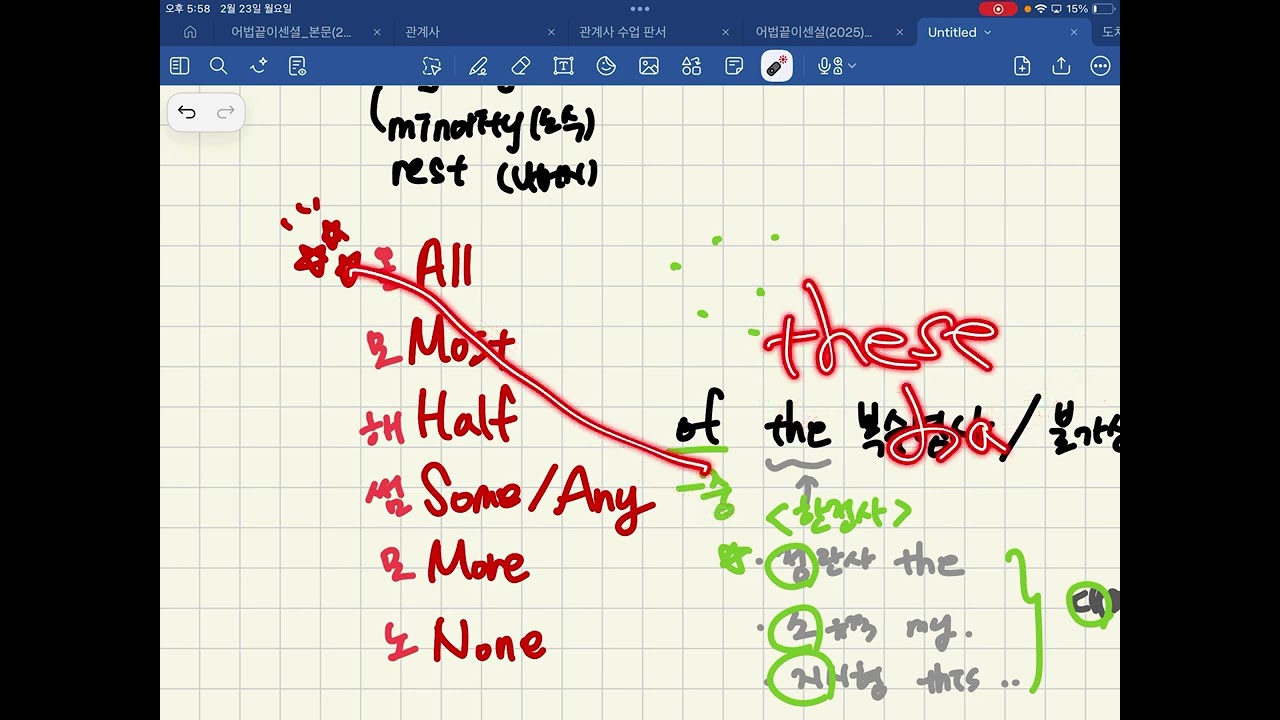 오후 5:58 2월 23일 월요일
15%
어법끝이센셜_본문(2...
관계사
관계사 수업 판서
어법끝이센셜(2025)...
Untitled
minority (소수)
rest (나머지)
온 All
모 Most
해 Half
썸 Some/Any
모 More
노 None
these
of the 복수명사/불가산
~중
<한정사>
· 정관사 the
· 소유격 my.
· 지시형 this ..